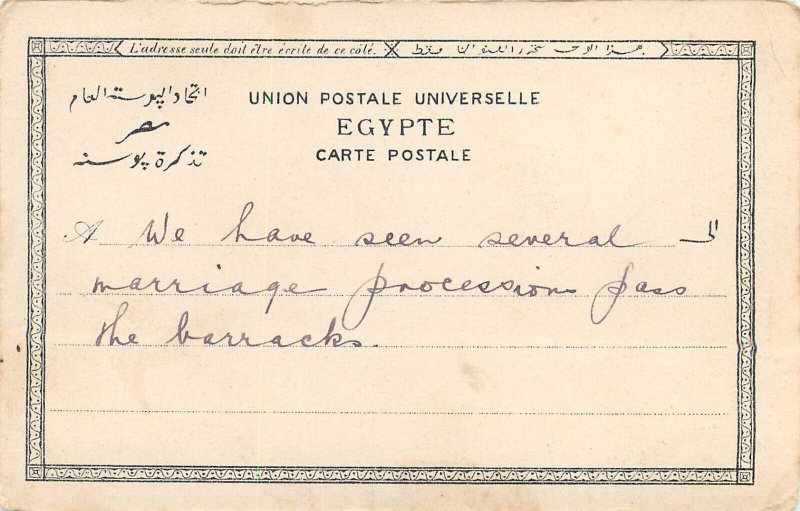 L'adresse seule doit être écrite de ce côté. بهذا الوجه تحرر العنوان فقط
اتحاد البوسته العام
مصر
تذكرة بوسته
UNION POSTALE UNIVERSELLE
EGYPTE
CARTE POSTALE
A We have seen several الى
marriage processions pass
the barracks.